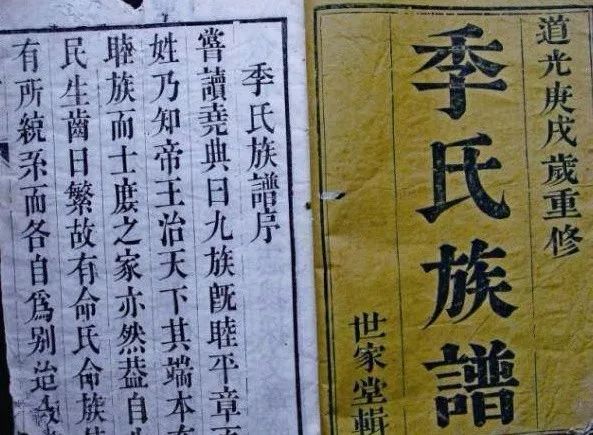 道光庚戌歲重修
季氏族譜
世家堂輯
季氏族譜序
嘗讀堯典曰九族旣睦平章
姓乃知帝王治天下其端本
睦族而士庶之家亦然葢自
民生齒日繁故有命氏命族
有所統系而各自爲别迨